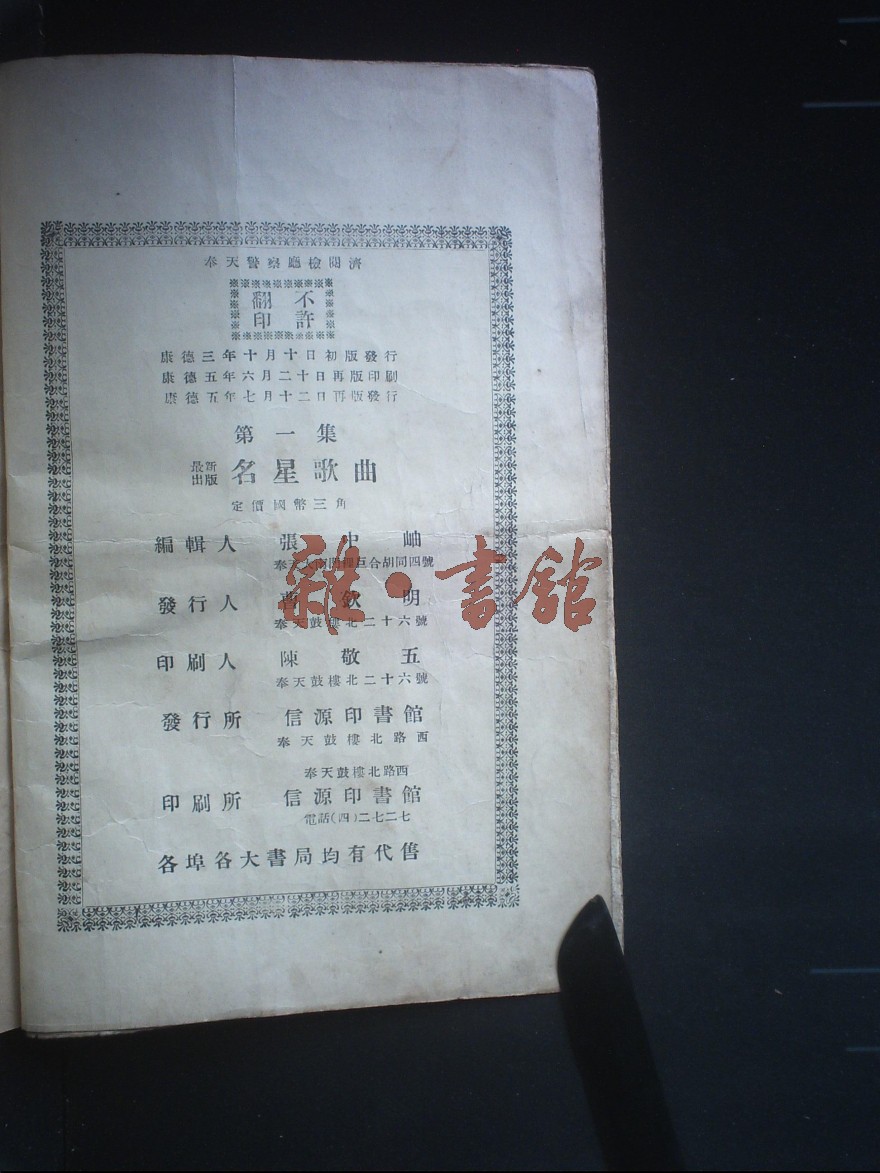 奉天警察廳檢閱濟
不許
翻印
康德三年十月十日初版發行
康德五年六月二十日再版印刷
康德五年七月十二日再版發行
第一集
最新出版 名星歌曲
定價國幣三角
編輯人 張中岫
奉天大南關 合胡同四號
發行人 曹欽明
奉天鼓樓北二十六號
印刷人 陳敬五
奉天鼓樓北二十六號
發行所 信源印書館
奉天鼓樓北路西
奉天鼓樓北路西
印刷所 信源印書館
電話(四)二七二七
各埠各大書局均有代售
雜·書館